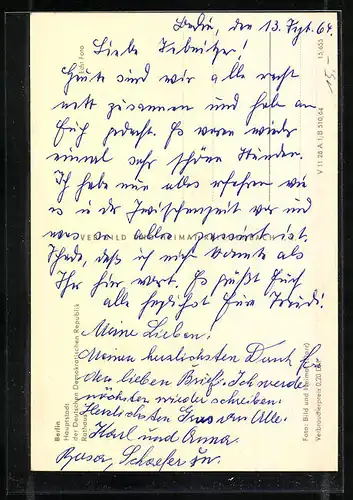 Berlin, den 13. Sept. 64.
Liebe
Heute sind wir alle recht
nett zusammen und haben an
Euch gedacht. Es waren wieder
einmal sehr schöne Stunden.
Ich habe nun alles erfahren wie
es in der Zwischenzeit war und
was so alles passiert ist.
Schade, daß ich nicht konnte als
Ihr hier wart. Es grüßt Euch
alle herzlichst Eure Trudi!
Meine Lieben!
Meinen herzlichsten Dank f.
den lieben Brief. Ich werde
nächstens wieder schreiben.
Herzlichsten Gruss an Alle.
Karl und Anna.
Schaefer
Echt Foto
15,653
15,-
V 11 28 A 1/B 510/64
VERLAG BILD UND HEIMAT REICHENBACH
Berlin
Hauptstadt
der Deutschen Demokratischen Republik
Rathaus
Foto: Bild und Heimat
Verbraucherpreis 0,20